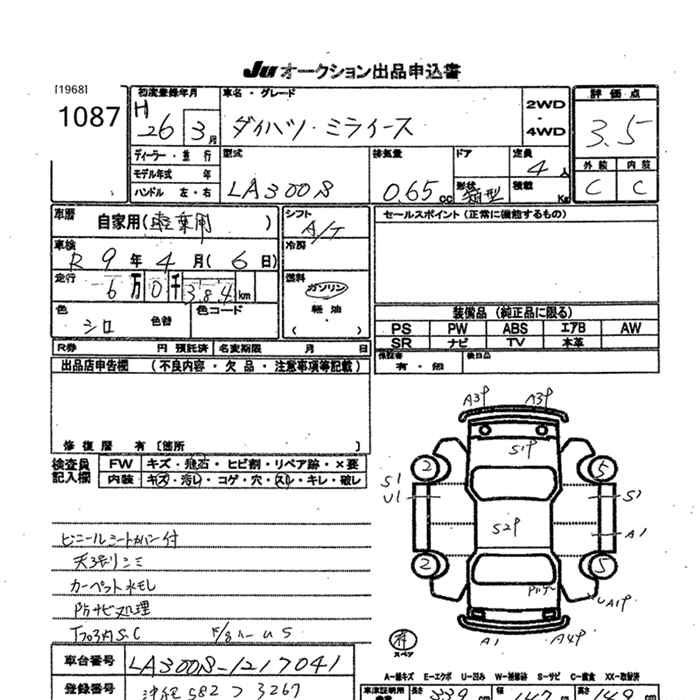 Ju オークション出品申込書
[1968]
1087
初度登録年月
H 26 3月
車名・グレード
ダイハツ・ミライース
2WD
・
4WD
評価点
3.5
外装 内装
C C
ディーラー・並行
モデル年式 年
ハンドル 左・右
型式
LA300S
排気量
0.65 cc
ドア
形状 箱型
定員
4 人
積載 Kg
車歴
自家用( )
車検
R 9 年 4 月( 6 日)
走行
6万 0千 384 km
色
シロ
色替
色コード
シフト
A/T
冷房
燃料
ガソリン
軽油
( )
セールスポイント (正常に機能するもの)
装備品 (純正品に限る)
PS PW ABS エアB AW
SR ナビ TV 本革
保証書
有・無
後日品
R券 円 預託済 名変期限 月 日
出品店申告欄 (不良内容・欠品・注意事項等記載)
修復歴 有〔箇所 〕
検査員
記入欄
FW キズ・飛石・ヒビ割・リペア跡・×要
内装 キズ・汚レ・コゲ・穴・スレ・キレ・破レ
ビニールシートカバー付
カーペット水モレ
Pカナビ処理
A3P A3P
S1P
2 5
S1
U1
S1
S2P
A1
2 5
UA1P
A1 A4P
スペア
車台番号
LA300S-1217041
A-線キズ E-エクボ U-凹み W-補修跡 S-サビ C-腐食 XX-取替済
登録番号
沖縄 582 つ 3267
車庫証明用
長さ 339 cm 幅 147 cm 高さ 149 cm